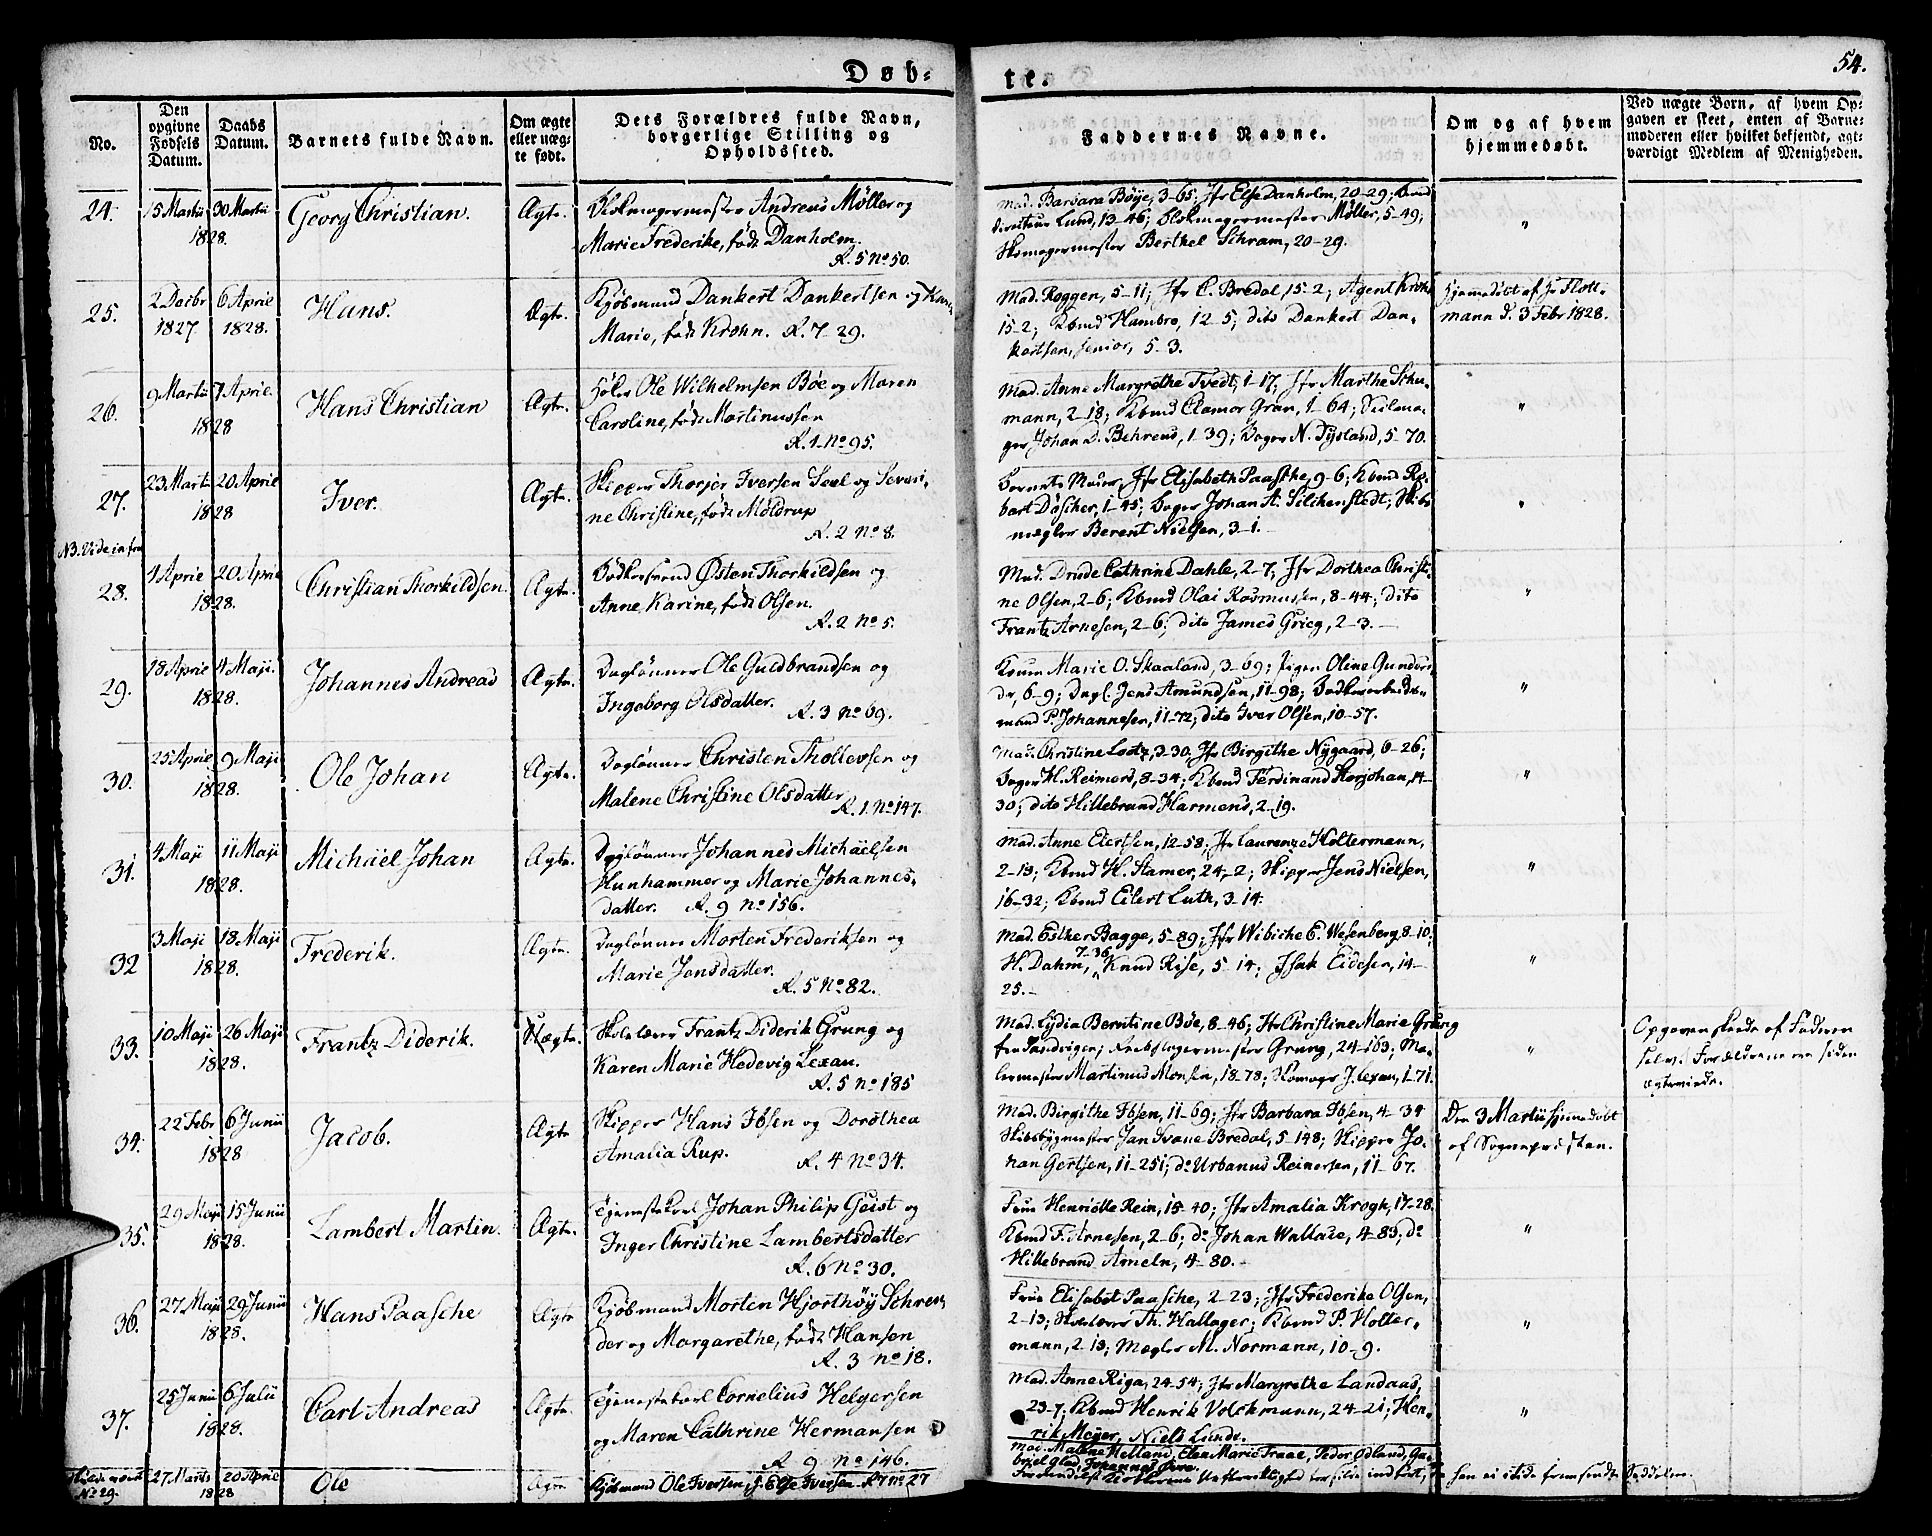 Døb-
te.
54.
No.
Den opgivne Fødsels Datum.
Daabs Datum.
Barnets fulde Navn.
Om ægte eller uægte født.
Dets Forældres fulde Navn, borgerlige Stilling og Opholdssted.
Faddernes Navne.
Om og af hvem hjemmedøbt.
Ved uægte Børn, af hvem Opgaven er skeet, enten af Barnemoderen eller hvilket bekjendt, agtværdigt Medlem af Menigheden.
24. 15 Martii 30 Martii Georg Christian. Ægte. Blokmagermester Andreas Møller og
1828. Marie Frederike, født Danholm.
R. 5 No 50.
Mad. Barbara Bøye, 3-65; Jfr Else Danholm, 20-29; Brand
directeur Lund, 13-46; Blokmagermester Møller, 5-49;
Skomagermester Berthel Schram, 20-29.
"
25. 2 Decbr 6 April Hans. Ægte. Kjøbmand Dankert Dankertsen og Karen
1827 1828. Marie, født Krohn. R. 7-29.
Mad. Roggen, 5-11; Jfr C. Bredal, 15-2; Agent Krohn
15-2; Kbmd Hambro, 12-5; dito Dankert Dan-
kertsen, senior, 5-3.
Hjemmedøbt af Hr Flott-
mann d. 3 Febr 1828.
26. 9 Martii 7 April. Hans Christian Ægte. Høker Ole Wilhelmsen Bøe og Maren
1828 Caroline, født Martinussen
R. 1. No 95.
Mad. Anne Margrethe Tvedt, 1-17; Jfr Marthe Schu-
mann, 2-18; Kbmd Clamer Gran, 1-64; Seilma-
ger Johan D. Behrens, 1-39; Bager N. Tysland, 5-70.
"
27. 23 Martii 20 April Iver. Ægte. Skipper Thorjer Iversen Sæl og Severi-
1828 ne Christine, født Møldrup
R. 2 No 8.
Barnets Moder, Jfr Elisabeth Paasche, 9-6; Kbmd Ro-
bert Døscher, 1-45; Bager Johan A. Silchenstedt; Skibs
mægler Berent Nielsen, 3-1.
"
NB. Vide infra
28. 4 April 20 April Christian Thorkildsen. Ægte. Bødkersvend Østen Thorkildsen og
1828. Anne Karine, født Olsen.
R. 2 No 5.
Mad. Drude Cathrine Dahle, 2-7; Jfr Dorthea Christi-
ne Olsen, 2-6; Kbmd Olai Rasmussen, 8-44; dito
Frantz Arnesen, 2-6; dito James Grieg, 2-3.
"
29. 18 April 4 Maji. Johannes Andreas Ægte. Daglønner Ole Guldbrandsen og
1828. Ingeborg Olsdatter.
R. 3 No 69.
Konen Marie O. Skaaland, 3-69; Pigen Oline Gunders-
dr, 6-9; Dagl. Jens Amundsen, 11-98; Bødkerarbeids-
mand P. Johannesen, 11-72; dito Iver Olsen, 10-57.
"
30. 25 April 9 Maji Ole Johan Ægte. Daglønner Christen Thollevsen og
1828. Malene Christine Olsdatter
R. 1. No 147.
Mad. Christine Lootz, 3-30; Jfr Birgithe Nygaard, 6-26;
Bager H. Reimers, 8-34; Kbmd Ferdinand Storjohan, 14-
30; dito Hillebrand Harmens, 2-19.
"
31. 4 Maji 11 Maji Michäel Johan Ægte. Daglønner Johannes Michäelsen
1828. Hunhammer og Marie Johannes-
datter. R. 9 No 156.
Mad. Anne Eiertsen, 12-58; Jfr Laurenze Holtermann,
2-13; Kbmd H. Stamer, 24-2; Skipper Jens Nielsen,
16-32; Kbmd Eilert Luth, 3-14.
"
32 3 Maji 18 Maji Frederik. Ægte. Daglønner Morten Frederiksen og
1828. Marie Jensdatter.
R. 5 No 82.
Mad. Esther Bagge, 5-89; Jfr Wibiche E. Wesenberg, 8-10;
H. Dahm, 7-36, Knud Rise, 5-14; Isak Eidesen, 14-
25.-
"
33. 10 Maji 26 Maji Frantz Diderik. Uægte. Skolelærer Frantz Diderik Grung og
1828. Karen Marie Hedevig Lexau.
R. 5 No 185
Mad. Lydia Berntine Bøe, 8-46; Jfr Christine Marie Grung
fra Sandvigen; Reebslagermester Grung, 24-163; Ma-
lermester Martinus Monsen, 18-78; Skomager J. Lexau, 1-71.
"
Opgaven skeede af Faderen
selv. Forældrene ere siden
ægteviede.
34. 22 Febr 6 Junii Jacob. Ægte Skipper Hans Ibsen og Dorothea
1828 Amalia Rup. R. 4 No 34.
Mad. Birgithe Ibsen, 11-69; Jfr Barbara Ibsen, 4-34
Skibsbygmester Jan Svane Bredal, 5-148; Skipper Jo-
han Gertsen, 11-251; do Urbanus Reinersen, 11-67.
Den 3 Martii hjemmedøbt
af Sognepræsten.
35. 29 Maji 15 Junii Lambert Martin. Ægte. Tjenestekarl Johan Philip Geist og
1828. Inger Christine Lambertsdatter
R. 6 No 30.
Frue Henriette Rein, 15-40; Jfr Amalia Krogh, 17-28.
Kbmd F. Arnesen, 2-6; do Johan Wallace, 4-83; do
Hillebrand Ameln, 4-80.
"
36. 27 Maji 29 Junii Hans Paasche Ægte Kjøbmand Morten Hjorthøy Schrei-
1828. der og Margarethe, født Hansen
R. 3 No 18.
Frue Elisabet Paasche, 2-23; Jfr Frederike Olsen,
2-13; Skolelærer Th. Hallager; Kbmd P. Holter-
mann, 2-13; Mægler M. Normann, 10-9.
"
37. 25 Junii 6 Julii Carl Andreas Ægte. Tjenestekarl Cornelius Helgersen
1828. og Maren Cathrine Hermansen
R. 9 No 146.
Mad. Anne Riga, 24-54; Jfr Margrethe Landaas,
23-7; Kbmd Henrik Volckmann, 24-21; Hen-
rik Meyer, Niels Lunde.
"
No 29. 27 Martii 20 April Ole Ægte Kjøbmand Ole Iversen, Else Iversen R 7 No 27
1828
Mad. Malene Helland, Elen Marie Traae, Peder Odland, Ga-
briel Glad, Johannes